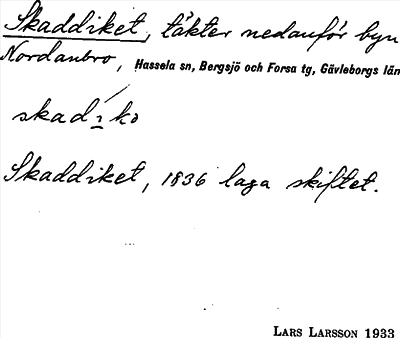 Skaddiket, täkter nedanför byn
Nordanbro, Hassela sn, Bergsjö och Forsa tg, Gävleborgs län
skadiko
Skaddiket, 1836 laga skiftet.
LARS LARSSON 1933